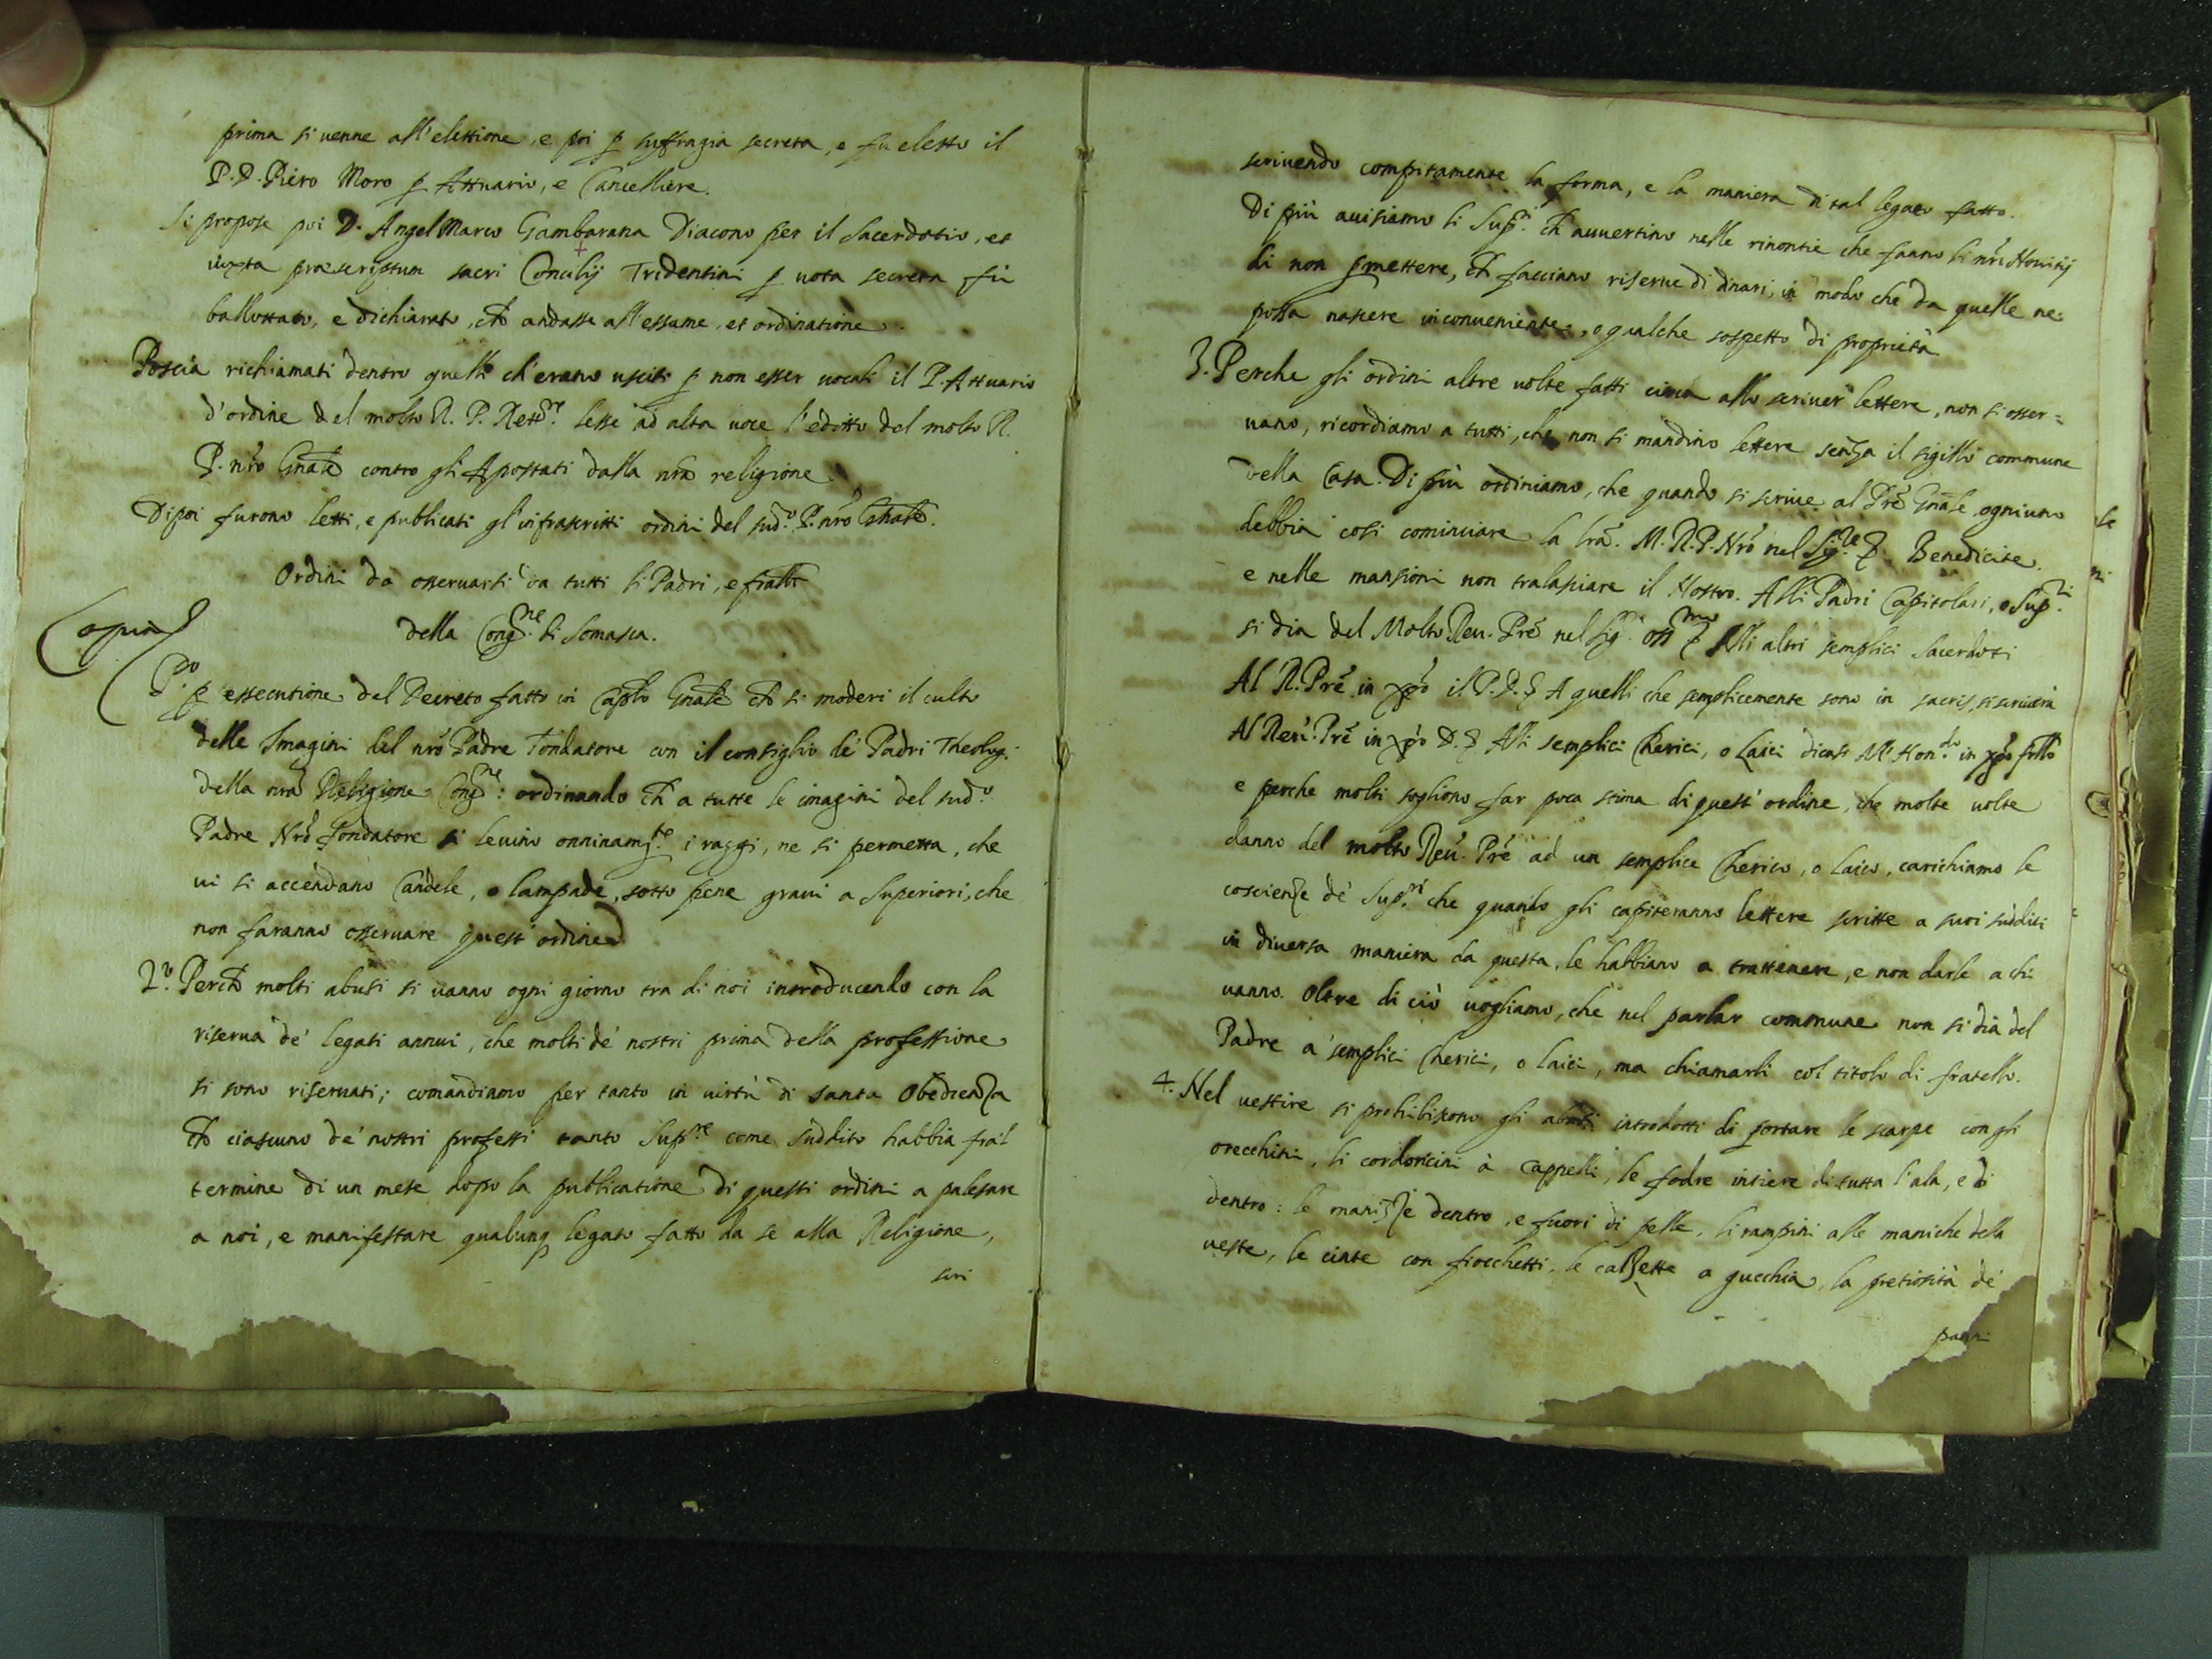 prima si venne all'elettione, e poi p suffragia secreta, e fu eletto il
P. D. Piero Moro p Attuario, e Cancelliere.
Si propose poi D. Angel Marco Gambarana Diacono per il Sacerdotio, et
iuxta præscriptum sacri Concilij Tridentini p uota secreta fù
ballottato, e dichiarato, ch andasse all'essame, et ordinatione.
Poscia richiamati dentro quelli ch'erano usciti p non esser uocali il P. Attuario
d'ordine del molto R. P. Rett.re lesse ad alta uoce l'editto del molto R.
P. nro Gnale contro gli Apostati dalla nra religione.
Dipoi furono letti, e publicati gl'infrascritti ordini del sud.o P. nro Gnale.
Ordini da osseruarsi da tutti li Padri, e fratelli
della Cong.ne di Somasca.
Copia
P.o p essecutione del Decreto fatto in Caplo Gnale ch si moderi il culto
delle Imagini del nro Padre Fondatore con il consiglio de' Padri Theolog:
della nra Religione Cong.ne: ordinando ch a tutte le imagini del sud.o
Padre Nro fondatore si leuino onninam.te i raggi, ne si permetta, che
ui si accendano Candele, o lampade, sotto pene graui a Superiori, che
non faranno osseruare quest'ordine
2.o Perch molti abusi si uanno ogni giorno tra di noi introducendo con la
riserua de' legati annui, che molti de' nostri prima della professione
si sono riseruati; comandiamo per tanto in uirtù di santa Obedienza
ch ciascuno de' nostri professi tanto Sup.re come suddito habbia frà'l
termine di un mese dopo la publicatione di questi ordini a palesare
a noi, e manifestare qualunq legato fatto da se alla Religione,
scri
scriuendo compitamente la forma, e la maniera di tal legato fatto.
Di più auisiamo li Sup.ri ch auuertino nelle rinontie che fanno li nri Nouitij
di non pmettere, ch facciano riserue di dinari, in modo che da quelle ne
possa nascere inconueniente, o qualche sospetto di proprietà
3. Perche gli ordini altre uolte fatti circa allo scriuer lettere, non si osser=
uano, ricordiamo a tutti, che non si mandino lettere senza il sigillo commune
della Casa. Di più ordiniamo, che quando si scriue al Pre Gnale ogniuno
debbia così cominciare la lra. M. R. P. Nro nel Sig.re Benedicite.
e nelle mansioni non tralasciare il Nostro. Alli Padri Capitolari, o Sup.ri
si dia del Molto Reu. Pre nel Sig. oss.mo Alli altri semplici Sacerdoti
Al R. Pre in xpo il P. D. A quelli che semplicemente sono in sacris, si scriuerà
Al Reu. Pre in xpo D. Alli semplici Cherici, o Laici dicasi All' Hon.do in xpo fratello
e perche molti sogliono far poca stima di quest'ordine, che molte uolte
danno del molto Reu. Pre ad un semplice Cherico, o Laico, carichiamo le
coscienze de' Sup.ri che quando gli capiteranno lettere scritte a suoi sudditi
in diuersa maniera da questa, le habbiano a trattenere, e non darle a chi
uanno. Oltre di ciò uogliamo, che nel parlar commune non si dia del
Padre a' semplici Cherici, o laici, ma chiamarli col titolo di fratello.
4. Nel uestire si prohibiscono gli abusi introdotti di portare le scarpe con gli
orecchini, li cordoncini à cappelli, le fodre intiere di tutta l'ala, e di
dentro: le manizze dentro, e fuori di pelle, li rampini alle maniche della
ueste, le cinte con fiocchetti, le calzette a gucchia, la pretiosità de'
panni